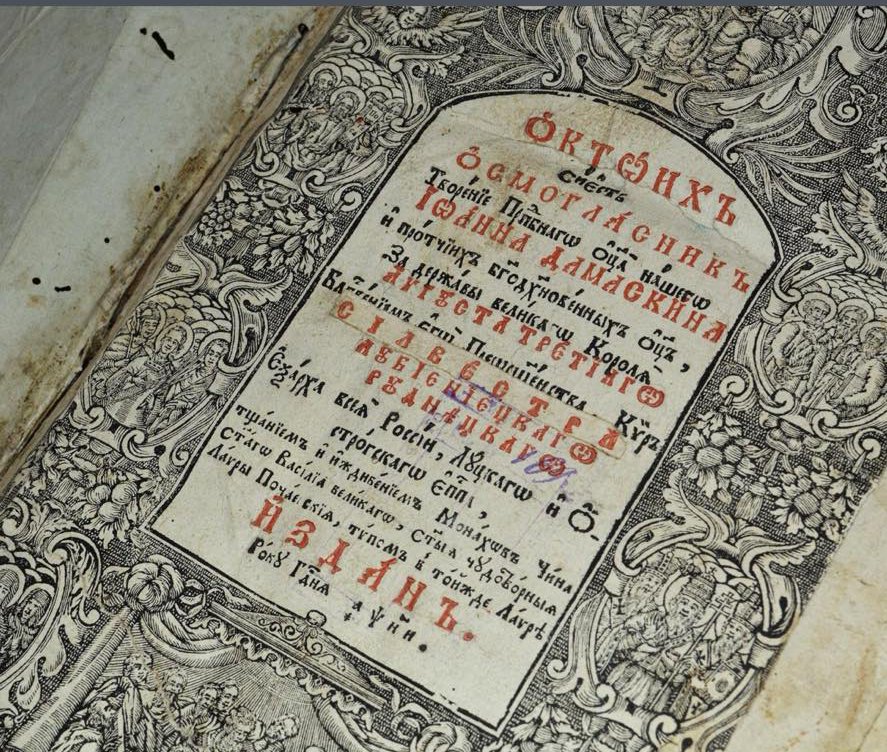 Ѻ҆КТѠ́ИХЪ
сі́есть
Ѻ҆СМОГЛА́СНИКЪ
Творе́нїе Прⷣпбнагѡ Ѻ҆ц҃а̀ на́шегѡ
ІѠА́ННА ДАМАСКИНА
и҆ про́тчїихъ бг҃одꙋхнове́нныхъ Ѻ҆ц҃ъ,
За держа́вы вели́кагѡ Короля̀
АѴГꙊСТА ТРЕТІАГѠ
СІЛВЕСТРА
ЛꙊБІЕНІЕЦКАГѠ
РꙊДНИЦКАГѠ
Е҆ѯа́рха всея̀ Россі́и, Лꙋ́цкагѡ и҆ Ѻ҆-
стро́гскагѡ Е҆пⷭ҇па,
тща́нїемъ и҆ и҆ждиве́нїемъ Мона́хѡвъ Чи́на
Ст҃а́гѡ Васі́лїа вели́кагѡ, Ст҃ы́ѧ чꙋдотво́рныѧ
Ла́ѵры Поча́евскїѧ, тѵ́помъ в то́йжде Ла́ѵрѣ
И҆ЗДА́НЪ.
Ро́кꙋ Гдⷭ҇нѧ ҂аѱни.